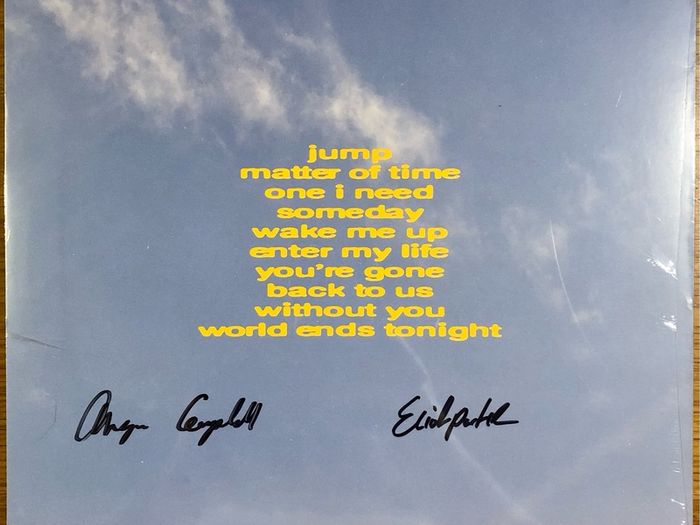 jump
matter of time
one i need
someday
wake me up
enter my life
you're gone
back to us
without you
world ends tonight
Campbell